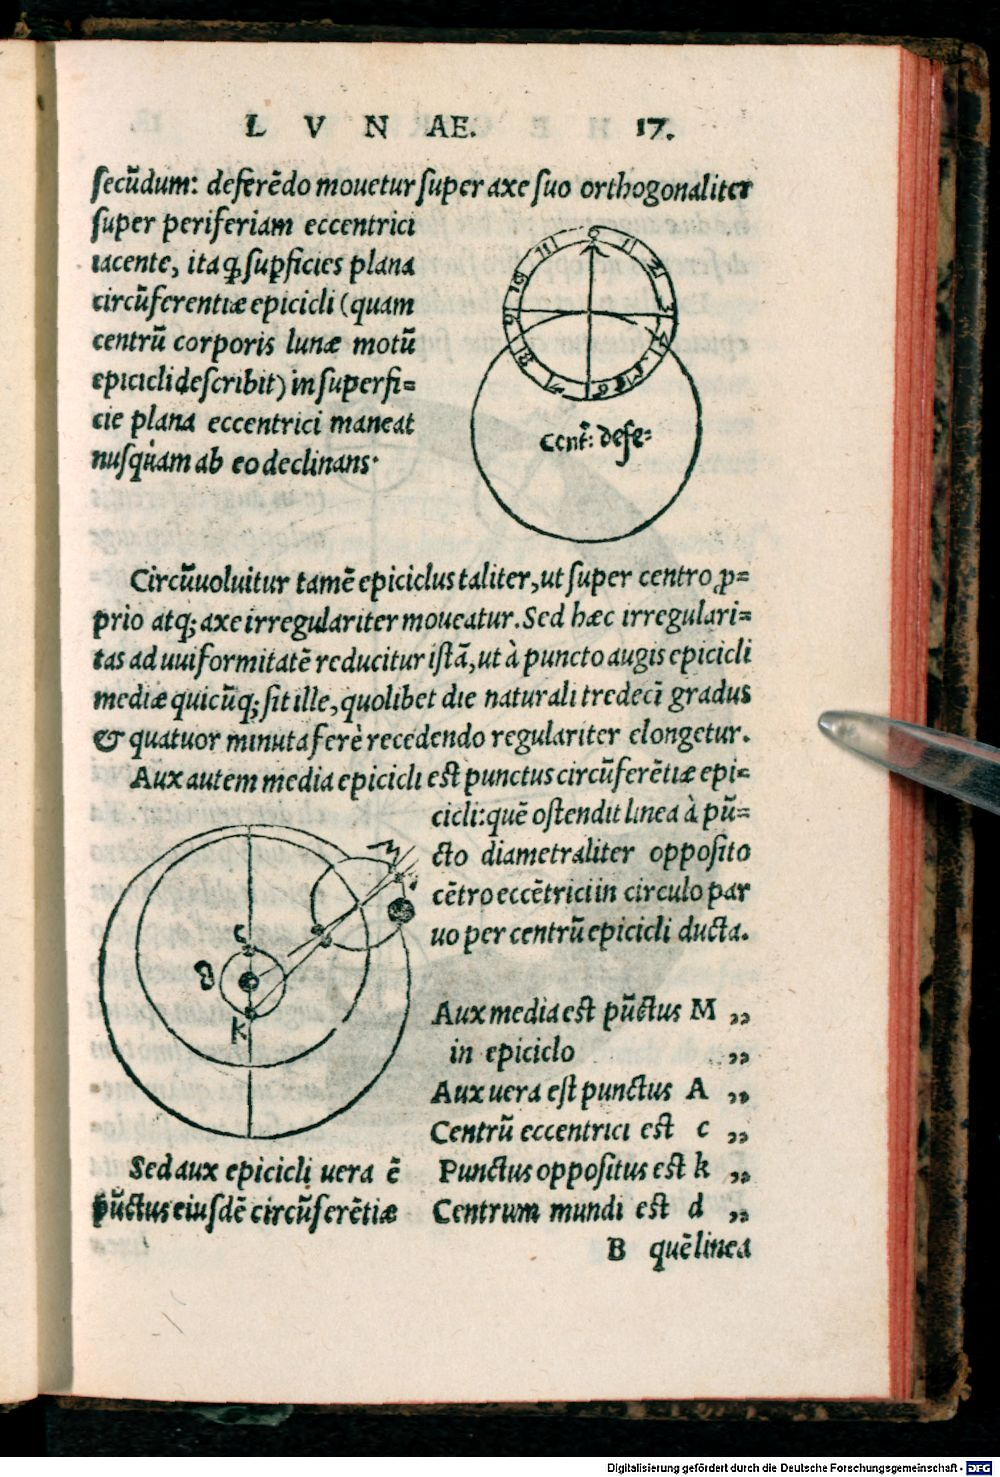 L V N AE. 17.
secūdum: deferēdo mouetur super axe suo orthogonaliter
super periferiam eccentrici
iacente, ita ꝙ suꝑficies plana
circūferentiæ epicicli (quam
centrū corporis lunæ motū
epicicli describit) in superfi=
cie plana eccentrici maneat
nusq̇uam ab eo declinans.
6 11 2 3 4 5 6 7 8 9 10 11
cent: defe:
Circūuoluitur tamē epiciclus taliter, ut super centro ꝓ=
prio atq; axe irregulariter moueatur. Sed hæc irregulari=
tas ad uuiformitatē reducitur istā, ut à puncto augis epicicli
mediæ quicūq; sit ille, quolibet die naturali tredecī gradus
& quatuor minuta ferè recedendo regulariter elongetur.
Aux autem media epicicli est punctus circūferētiæ epi=
cicli: quē ostendit linea à pū=
cto diametraliter opposito
cētro eccētrici in circulo par
uo per centrū epicicli ducta.
M
C
D
K
Aux media est pūctus M „
in epiciclo „
Aux uera est punctus A „
Centrū eccentrici est c „
Sed aux epicicli uera ē Punctus oppositus est k „
pūctus eiusdē circūferētiæ Centrum mundi est d „
B quē linea
Digitalisierung gefördert durch die Deutsche Forschungsgemeinschaft - DFG